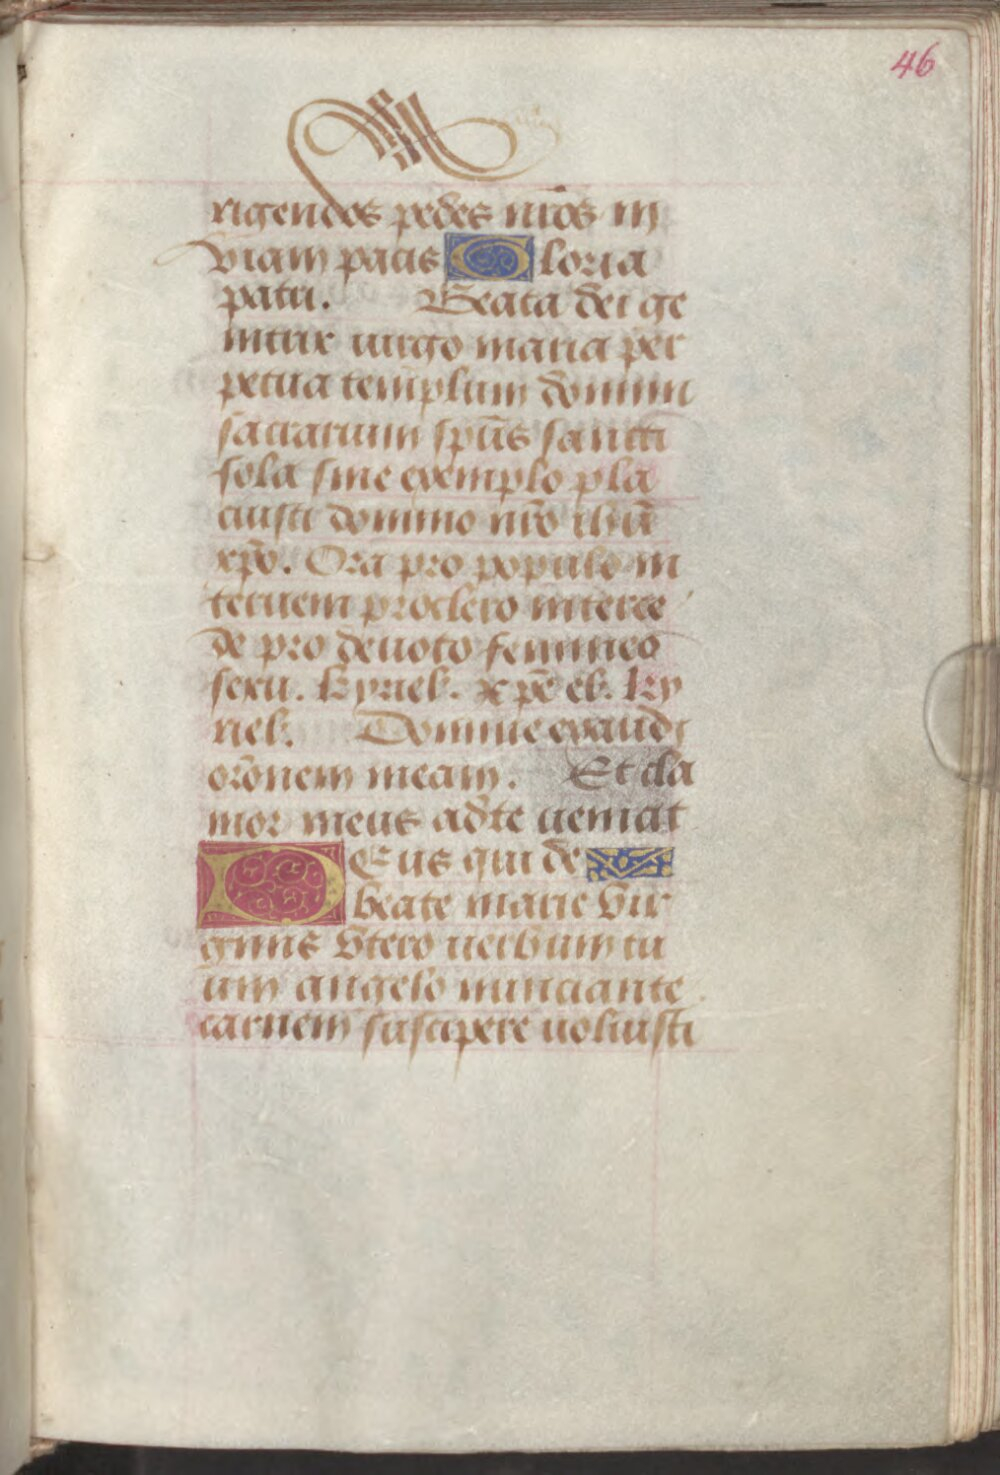 46
rigendos pedes nr̄os in
viam pacis Gloria
patri. Beata dei ge
nitrix uirgo maria per
petua templum domini
sacrarium sp̄us sancti
sola sine exemplo pla
cuisti domino nr̄o ihū
xp̄o. Ora pro populo in
teruem pro clero interce
de pro deuoto femineo
sexu. Kyriel. xp̄e el. Ky
riel. Domine exaudi
or̄onem meam. Et cla
mor meus ad te ueniat
DEus qui de
beate marie vir
ginis vtero uerbum tu
um angelo nunciante
carnem suscipere uoluisti